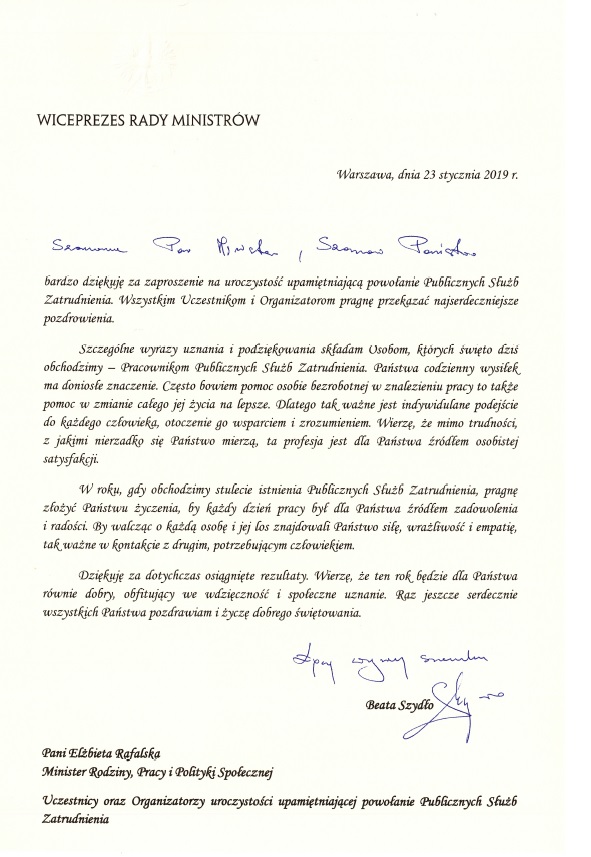 WICEPREZES RADY MINISTRÓW
Warszawa, dnia 23 stycznia 2019 r.
Szanowna Pani Minister, Szanowni Państwo
bardzo dziękuję za zaproszenie na uroczystość upamiętniającą powołanie Publicznych Służb
Zatrudnienia. Wszystkim Uczestnikom i Organizatorom pragnę przekazać najserdeczniejsze
pozdrowienia.
Szczególne wyrazy uznania i podziękowania składam Osobom, których święto dziś
obchodzimy – Pracownikom Publicznych Służb Zatrudnienia. Państwa codzienny wysiłek
ma doniosłe znaczenie. Często bowiem pomoc osobie bezrobotnej w znalezieniu pracy to także
pomoc w zmianie całego jej życia na lepsze. Dlatego tak ważne jest indywidulane podejście
do każdego człowieka, otoczenie go wsparciem i zrozumieniem. Wierzę, że mimo trudności,
z jakimi nierzadko się Państwo mierzą, ta profesja jest dla Państwa źródłem osobistej
satysfakcji.
W roku, gdy obchodzimy stulecie istnienia Publicznych Służb Zatrudnienia, pragnę
złożyć Państwu życzenia, by każdy dzień pracy był dla Państwa źródłem zadowolenia
i radości. By walcząc o każdą osobę i jej los znajdowali Państwo siłę, wrażliwość i empatię,
tak ważne w kontakcie z drugim, potrzebującym człowiekiem.
Dziękuję za dotychczas osiągnięte rezultaty. Wierzę, że ten rok będzie dla Państwa
równie dobry, obfitujący we wdzięczność i społeczne uznanie. Raz jeszcze serdecznie
wszystkich Państwa pozdrawiam i życzę dobrego świętowania.
Łączę wyrazy szacunku
Beata Szydło
Pani Elżbieta Rafalska
Minister Rodziny, Pracy i Polityki Społecznej
Uczestnicy oraz Organizatorzy uroczystości upamiętniającej powołanie Publicznych Służb
Zatrudnienia